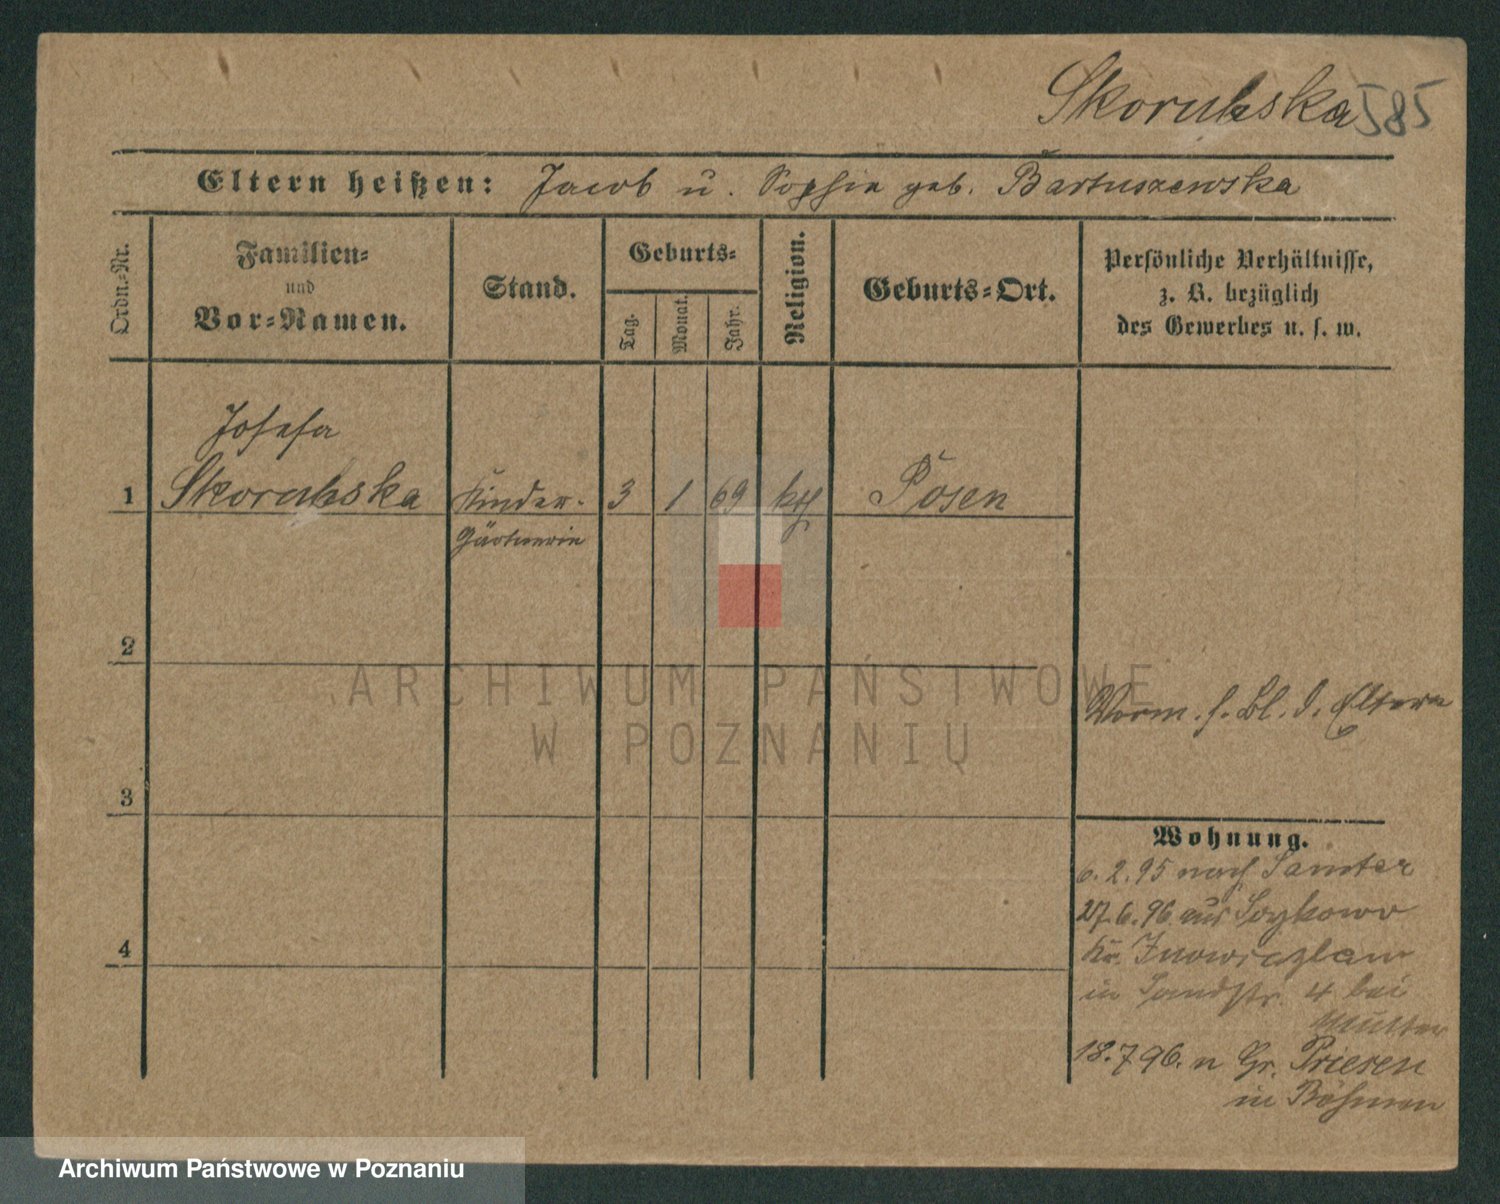 Skoruhska 585
Eltern heißen: Jacob u. Sophie geb. Bartuszewska
Ordn.-Nr.
Familien-
und
Vor-Namen.
Stand.
Geburts-
Tag.
Monat.
Jahr.
Religion.
Geburts-Ort.
Persönliche Verhältnisse,
z. B. bezüglich
des Gewerbes u. s. w.
Josefa
1 Skoruhska Kinder- 3 1 69 kth Posen
Gärtnerin
2
ARCHIWUM PAŃSTWOWE
W POZNANIU
Vorm. s. Bl. d. Eltern
3
Wohnung.
6.2.95 nach Samter
27.6.96 aus Szykowo
Kr. Inowrazlaw
in Sandstr. 4 bei
Mutter
4
18.7.96. n Gr. Priesen
in Böhmen
Archiwum Państwowe w Poznaniu